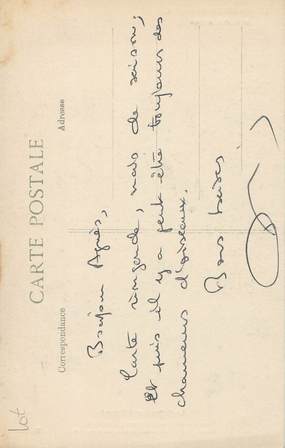 CARTE POSTALE
Correspondance
Adresse
Bonjour Agnès,
Carte ringarde, mais de saison,
Et puis il y a peut être toujours des
chasseurs d'oiseaux.
Bons baisers
Lot